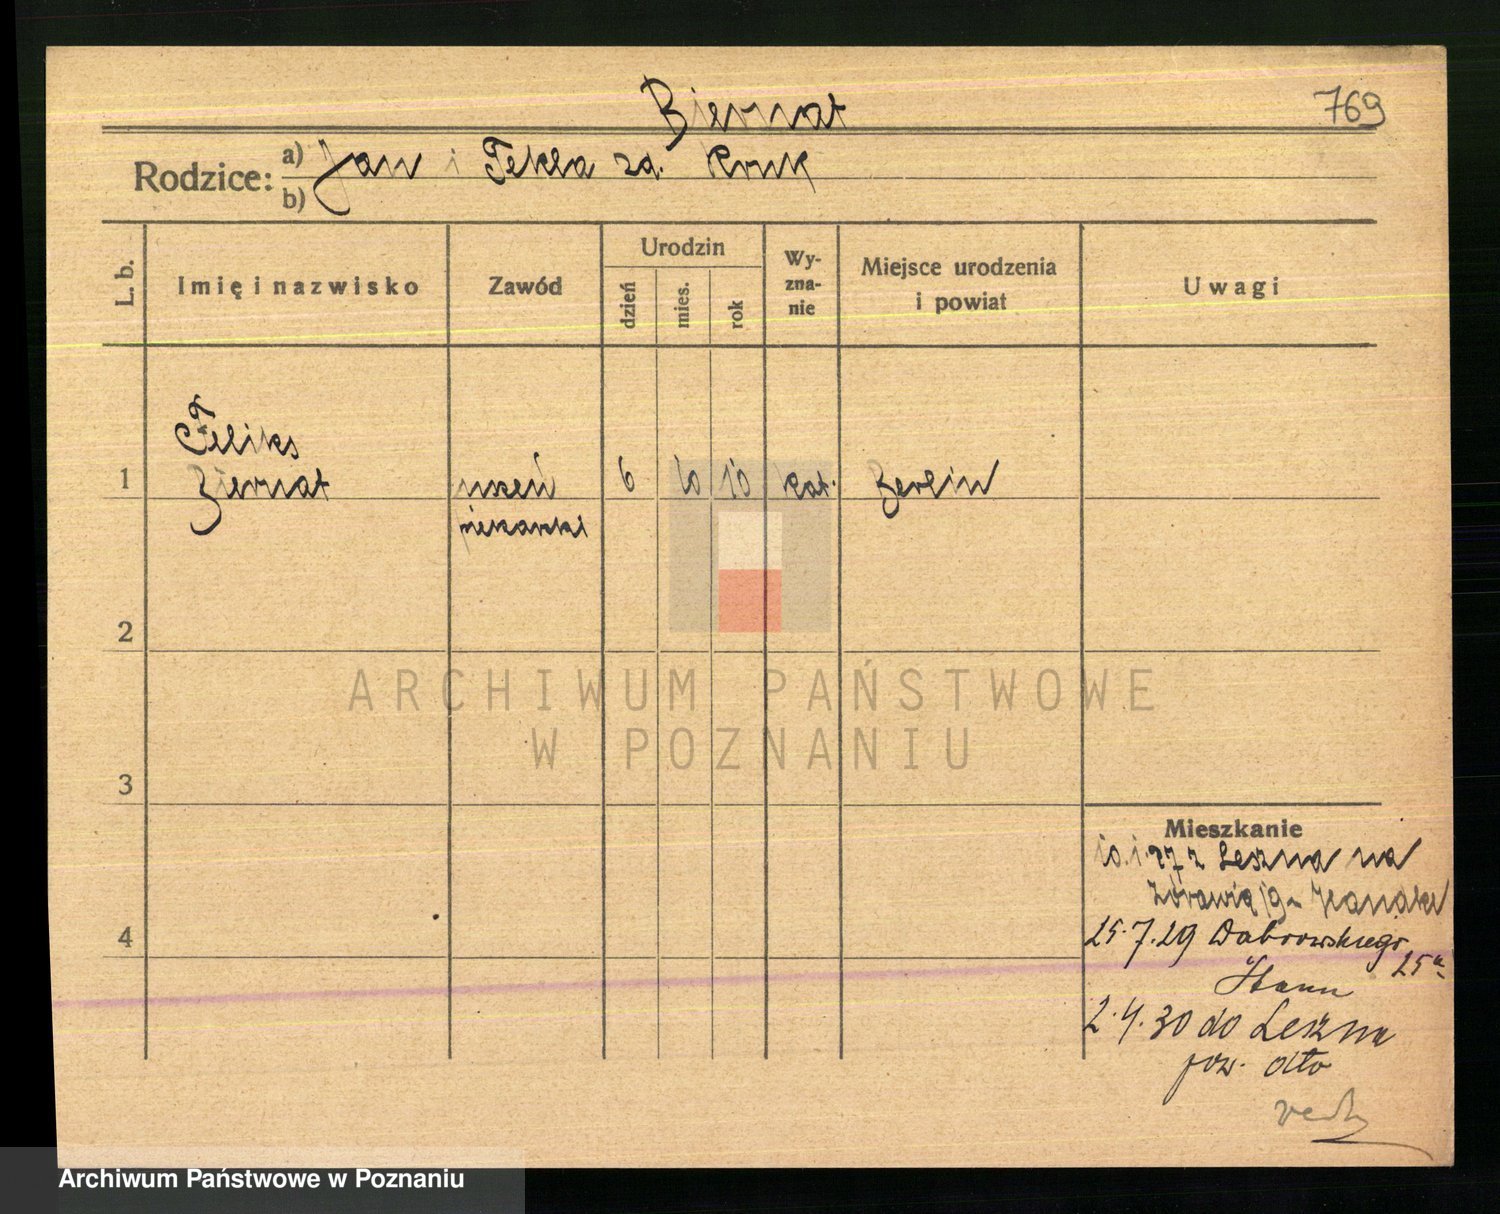 Biernat
769
Rodzice: a) Jan i Tekla zd. Kruk
b)
L. b.
Imię i nazwisko
Zawód
Urodzin
dzień
mies.
rok
Wy-
zna-
nie
Miejsce urodzenia
i powiat
Uwagi
Feliks
1 Biernat uczeń 6 10 10 kat. Berlin
piekarski
2
ARCHIWUM PAŃSTWOWE
W POZNANIU
3
Mieszkanie
10.1.27 z Leszna na
Żórawią 19
4
25.7.29 Dabrowskiego
25a
2.4.30 do Leszna
pow. dtto
Archiwum Państwowe w Poznaniu